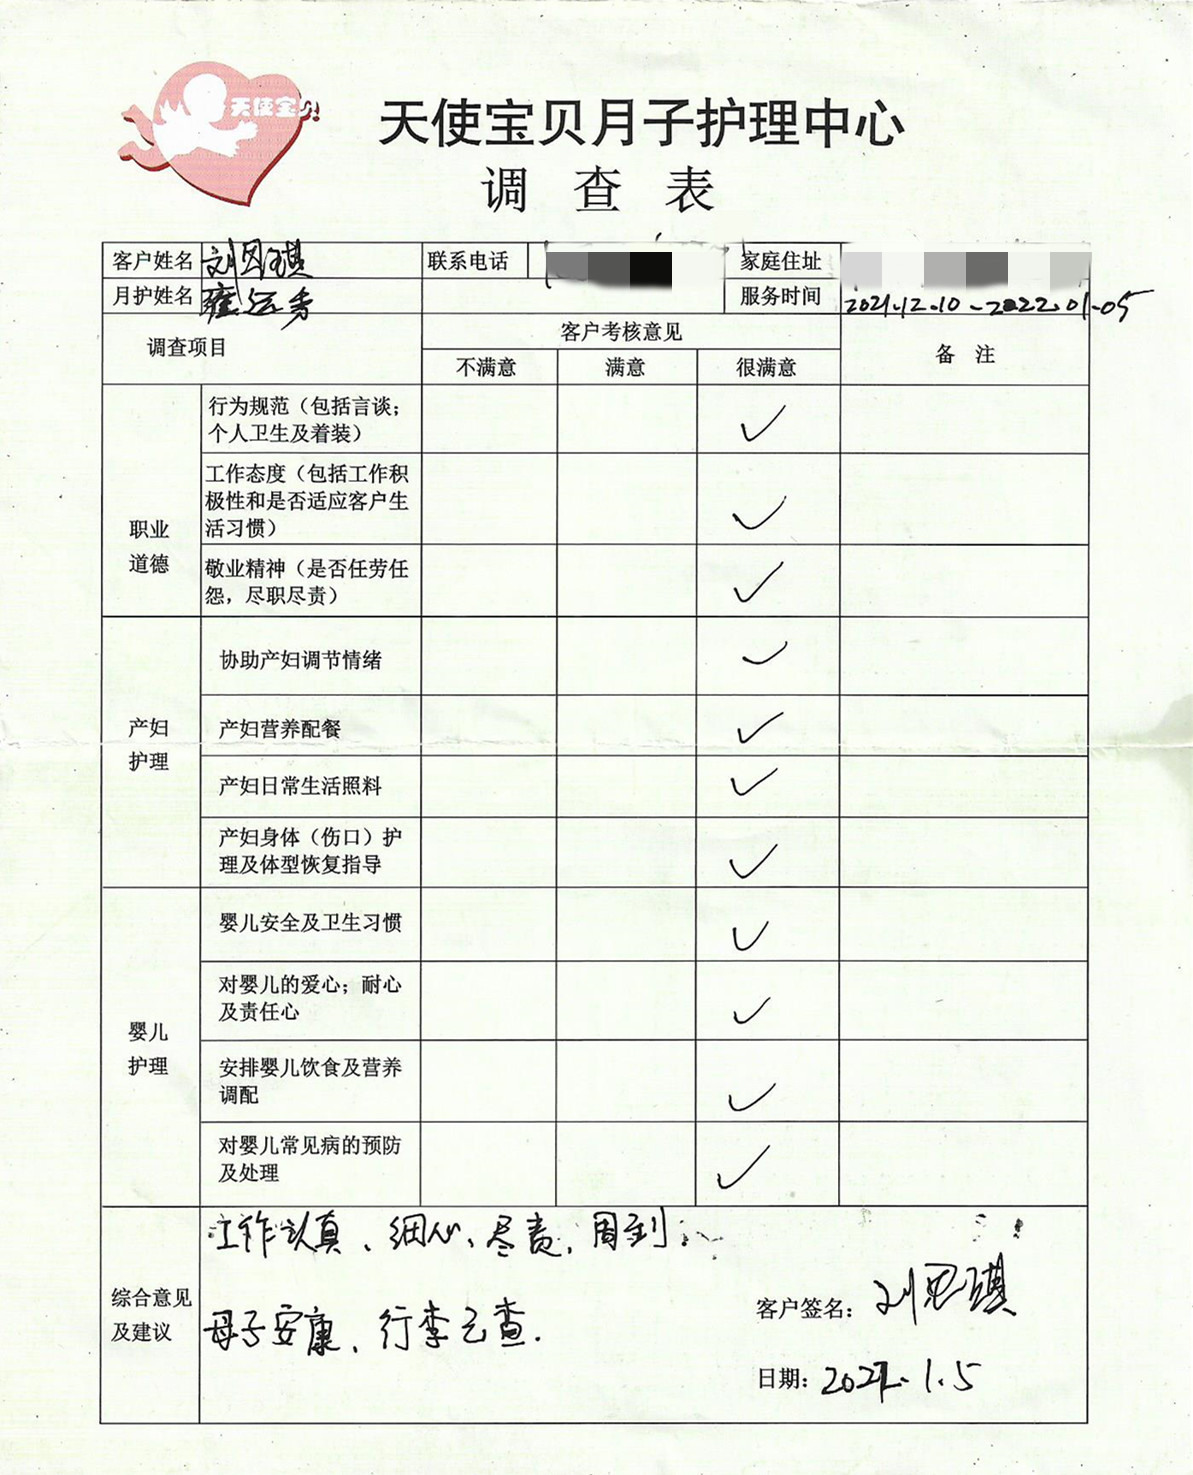 天使宝贝
天使宝贝月子护理中心
调 查 表
客户姓名 刘思琪 联系电话 家庭住址
月护姓名 雍远秀 服务时间 2021.12.10-2022.01.05
调查项目 客户考核意见 备 注
不满意 满意 很满意
职业
道德
行为规范（包括言谈；
个人卫生及着装） ✓
工作态度（包括工作积
极性和是否适应客户生
活习惯） ✓
敬业精神（是否任劳任
怨，尽职尽责） ✓
产妇
护理
协助产妇调节情绪 ✓
产妇营养配餐 ✓
产妇日常生活照料 ✓
产妇身体（伤口）护
理及体型恢复指导 ✓
婴儿
护理
婴儿安全及卫生习惯 ✓
对婴儿的爱心；耐心
及责任心 ✓
安排婴儿饮食及营养
调配 ✓
对婴儿常见病的预防
及处理 ✓
综合意见
及建议
工作认真、细心、尽责、周到.
母子安康、行李已查.
客户签名：刘思琪
日期：2022.1.5